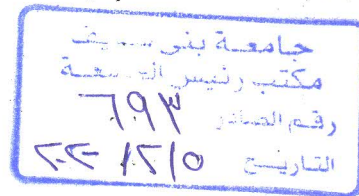 جامعة بنى سويف
مكتب رئيس الجامعة
رقم الصادر ٦٩٣
التاريخ